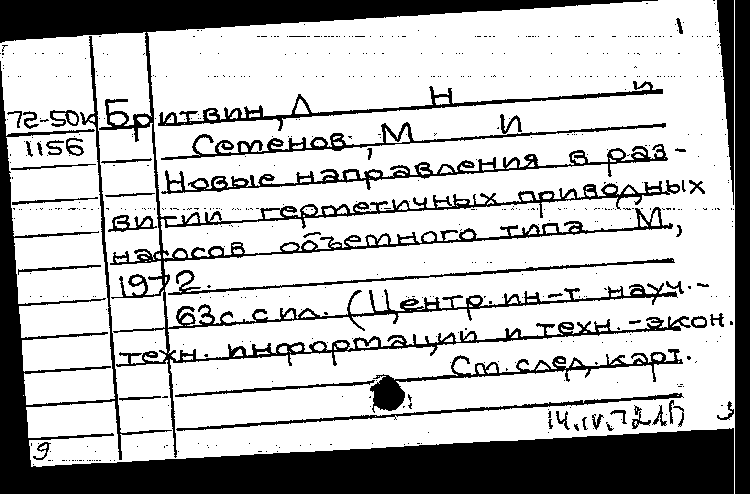 1
72-50к Бритвин, Л Н и
1156 Семенов, М И
Новые направления в раз-
витии герметичных приводных
насосов объемного типа. М.,
1972.
63с. с ил. (Центр. ин-т науч.-
техн. информации и техн.-экон.
См. след. карт.
14.IV.72
9